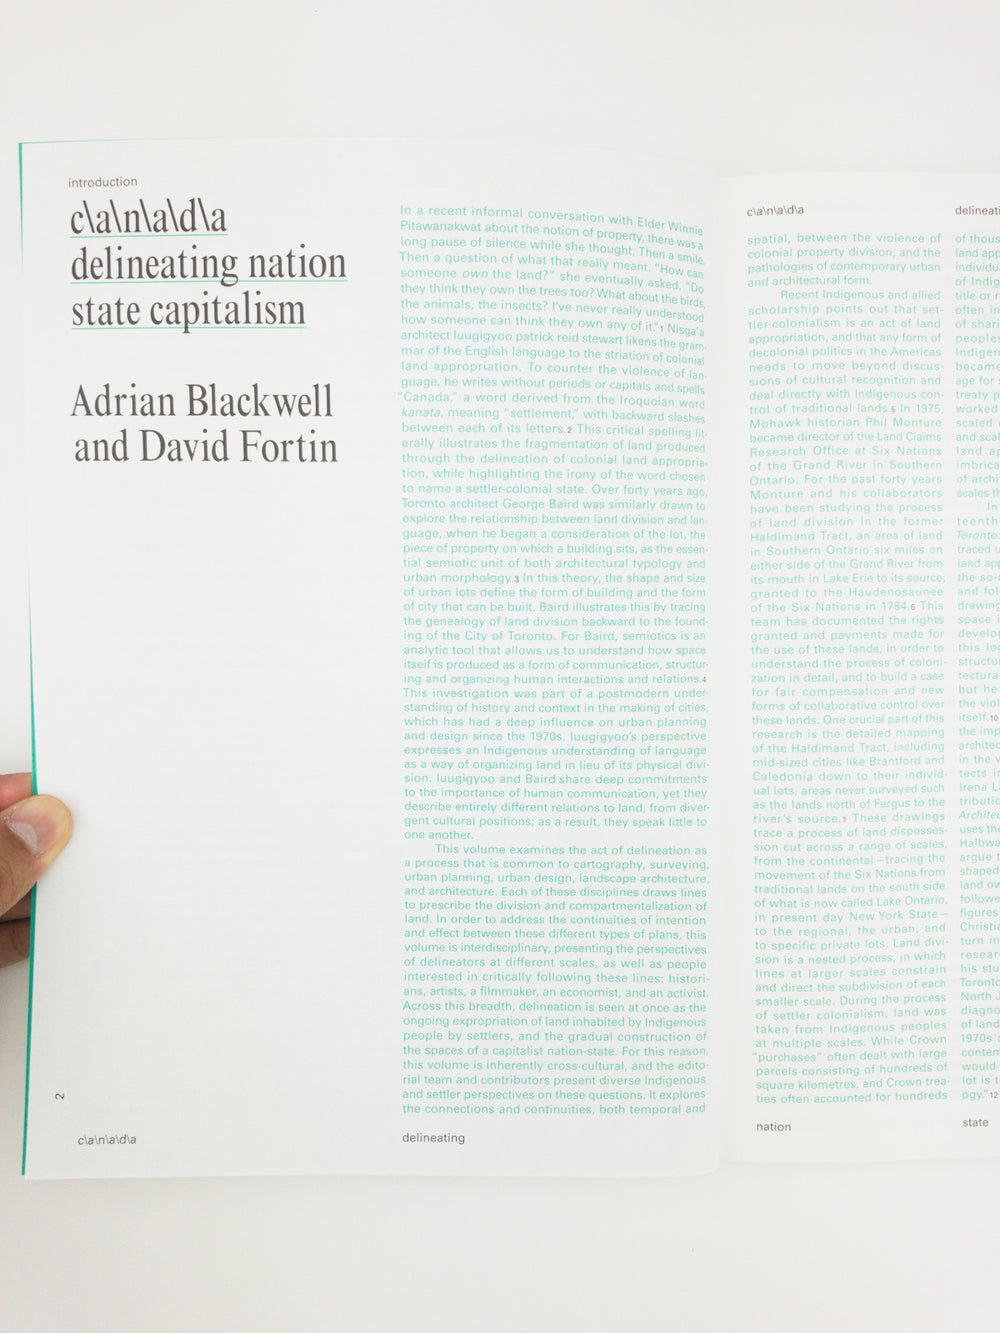 introduction
c\a\n\a\d\a
delineating nation
state capitalism
Adrian Blackwell
and David Fortin
In a recent informal conversation with Elder Winnie
Pitawanakwat about the notion of property, there was a
long pause of silence while she thought. Then a smile.
Then a question of what that really meant. “How can
someone own the land?” she eventually asked. “Do
they think they own the trees too? What about the birds,
the animals, the insects? I’ve never really understood
how someone can think they own any of it.”1 Nisga’a
architect luugigyoo patrick reid stewart likens the gram-
mar of the English language to the striation of colonial
land appropriation. To counter the violence of lan-
guage, he writes without periods or capitals and spells
“Canada,” a word derived from the Iroquoian word
kanata, meaning “settlement,” with backward slashes
between each of its letters.2 This critical spelling lit-
erally illustrates the fragmentation of land produced
through the delineation of colonial land appropria-
tion, while highlighting the irony of the word chosen
to name a settler-colonial state. Over forty years ago,
Toronto architect George Baird was similarly drawn to
explore the relationship between land division and lan-
guage, when he began a consideration of the lot, the
piece of property on which a building sits, as the essen-
tial semiotic unit of both architectural typology and
urban morphology.3 In this theory, the shape and size
of urban lots define the form of building and the form
of city that can be built. Baird illustrates this by tracing
the genealogy of land division backward to the found-
ing of the City of Toronto. For Baird, semiotics is an
analytic tool that allows us to understand how space
itself is produced as a form of communication, structur-
ing and organizing human interactions and relations.4
This investigation was part of a postmodern under-
standing of history and context in the making of cities,
which has had a deep influence on urban planning
and design since the 1970s. luugigyoo’s perspective
expresses an Indigenous understanding of language
as a way of organizing land in lieu of its physical divi-
sion. luugigyoo and Baird share deep commitments
to the importance of human communication, yet they
describe entirely different relations to land, from diver-
gent cultural positions; as a result, they speak little to
one another.
This volume examines the act of delineation as
a process that is common to cartography, surveying,
urban planning, urban design, landscape architecture,
and architecture. Each of these disciplines draws lines
to prescribe the division and compartmentalization of
land. In order to address the continuities of intention
and effect between these different types of plans, this
volume is interdisciplinary, presenting the perspectives
of delineators at different scales, as well as people
interested in critically following these lines: histori-
ans, artists, a filmmaker, an economist, and an activist.
Across this breadth, delineation is seen at once as the
ongoing expropriation of land inhabited by Indigenous
people by settlers, and the gradual construction of
the spaces of a capitalist nation-state. For this reason,
this volume is inherently cross-cultural, and the edito-
rial team and contributors present diverse Indigenous
and settler perspectives on these questions. It explores
the connections and continuities, both temporal and
2
c\a\n\a\d\a
delineating
c\a\n\a\d\a
spatial, between the violence of
colonial property division, and the
pathologies of contemporary urban
and architectural form.
Recent Indigenous and allied
scholarship points out that set-
tler-colonialism is an act of land
appropriation, and that any form of
decolonial politics in the Americas
needs to move beyond discus-
sions of cultural recognition and
deal directly with Indigenous con-
trol of traditional lands.5 In 1975,
Mohawk historian Phil Monture
became director of the Land Claims
Research Office at Six Nations
of the Grand River in Southern
Ontario. For the past forty years
Monture and his collaborators
have been studying the process
of land division in the former
Haldimand Tract, an area of land
in Southern Ontario six miles on
either side of the Grand River from
its mouth in Lake Erie to its source,
granted to the Haudenosaunee
of the Six Nations in 1784.6 This
team has documented the rights
granted and payments made for
the use of these lands, in order to
understand the process of coloni-
zation in detail, and to build a case
for fair compensation and new
forms of collaborative control over
these lands. One crucial part of this
research is the detailed mapping
of the Haldimand Tract, including
mid-sized cities like Brantford and
Caledonia down to their individ-
ual lots, areas never surveyed such
as the lands north of Fergus to the
river’s source.7 These drawings
trace a process of land disposses-
sion cut across a range of scales,
from the continental—tracing the
movement of the Six Nations from
traditional lands on the south side
of what is now called Lake Ontario,
in present day New York State—
to the regional, the urban, and
to specific private lots. Land divi-
sion is a nested process, in which
lines at larger scales constrain
and direct the subdivision of each
smaller scale. During the process
of settler colonialism, land was
taken from Indigenous peoples
at multiple scales. While Crown
“purchases” often dealt with large
parcels consisting of hundreds of
square kilometres, and Crown trea-
ties often accounted for hundreds
nation
delineati
of thous
land app
individu
of Indig
title or r
often in
of shar
peoples
Indigen
became
age for
treaty p
worked
scaled
and scal
land ap
imbrica
of archi
scales th
In
teenth
Toronto:
traced u
land app
the so-c
and fol
drawing
space i
develop
this lo
structu
tectura
but he
the viol
itself.10
the imp
architec
in the v
tects in
Irena L
tributio
Archited
uses the
Halbwa
argue t
shaped
land ov
followe
figures
Christia
turn in
researc
his stu
Toronto
North J
diagno
of land
1970s a
contem
would
lot is t
ogy.”12
state